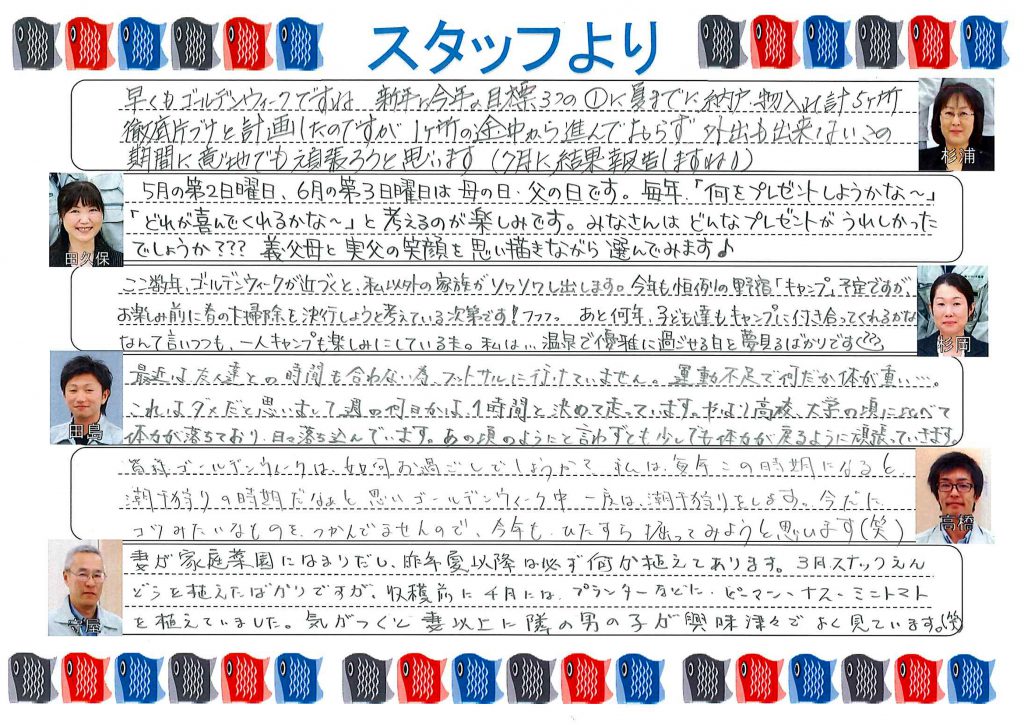 スタッフより
早くもゴールデンウィークですね 新年に今年の目標3つの①に夏までに納戸・物入れ計5ヶ所
徹底片づけと計画したのですが 1ヶ所の途中から進んでおらず 外出も出来ないこの
期間に意地でも頑張ろうと思います (7月に結果報告しますね!)
杉浦
5月の第2日曜日、6月の第3日曜日は 母の日・父の日です。毎年、「何をプレゼントしようかな〜」
「どれが喜んでくれるかな〜」と考えるのが楽しみです。みなさんは どんなプレゼントが うれしかった
でしょうか??? 義父母と実父の笑顔を思い描きながら 選んでみます♪
田久保
ここ数年、ゴールデンウィークが近づくと、私以外の家族が ソワソワし出します。今年も恒例の野宿「キャンプ」予定ですが、
お楽しみ前に春の大掃除を決行しようと考えている次第です!フフフ。 あと何年、子ども達もキャンプに付き合ってくれるかな
なんて言いつつも、一人キャンプも楽しみにしている夫。私は… 温泉で優雅に過ごせる日を夢見るばかりです
杉岡
最近は友人達との時間も合わない為、フットサルに行けていません。運動不足で何だか体が重い…。
これはダメだと思いまして週の何日かは、1時間と決めて走っています。やはり高校、大学の頃に比べて
体力が落ちており、日々落ち込んでいます。あの頃のようにと言わずとも少しでも体力が戻るように頑張っていきます。
田島
皆様ゴールデンウィークは、如何お過ごしでしょうか? 私は、毎年この時期になると、
潮干狩りの時期だなぁと思いゴールデンウィーク中 一度は、潮干狩りをします。今だに
コツみたいなものを、つかんでませんので、今年も、ひたすら掘ってみようと思います(笑)
高橋
妻が家庭菜園にはまりだし、昨年夏以降は必ず何か植えてあります。3月スナックえん
どうを植えたばかりですが、収穫前に4月には、プランターなどに、ピーマン・ナス・ミニトマト
を植えていました。気がつくと妻以上に隣の男の子が興味津々でよく見ています。(笑)
守屋